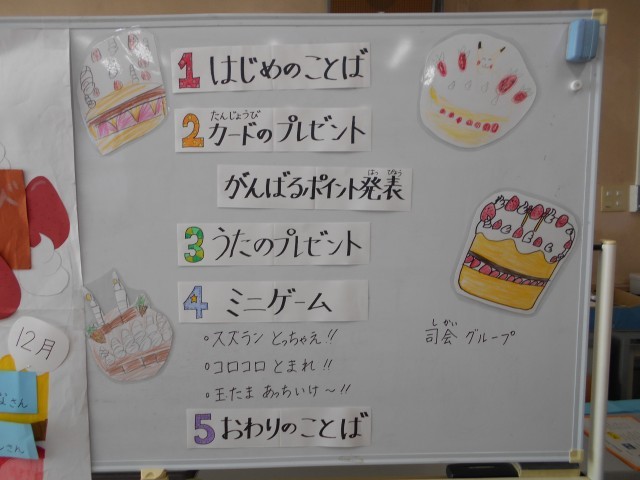 1 はじめのことば
たんじょうび
2 カードのプレゼント
はっ ぴょう
がんばるポイント発表
3 うたのプレゼント
4 ミニゲーム
○スズラン とっちゃえ!!
○コロコロ とまれ!!
○玉たま あっちいけ〜!!
5 おわりのことば
しかい
司会 グループ
12月
さん
さん